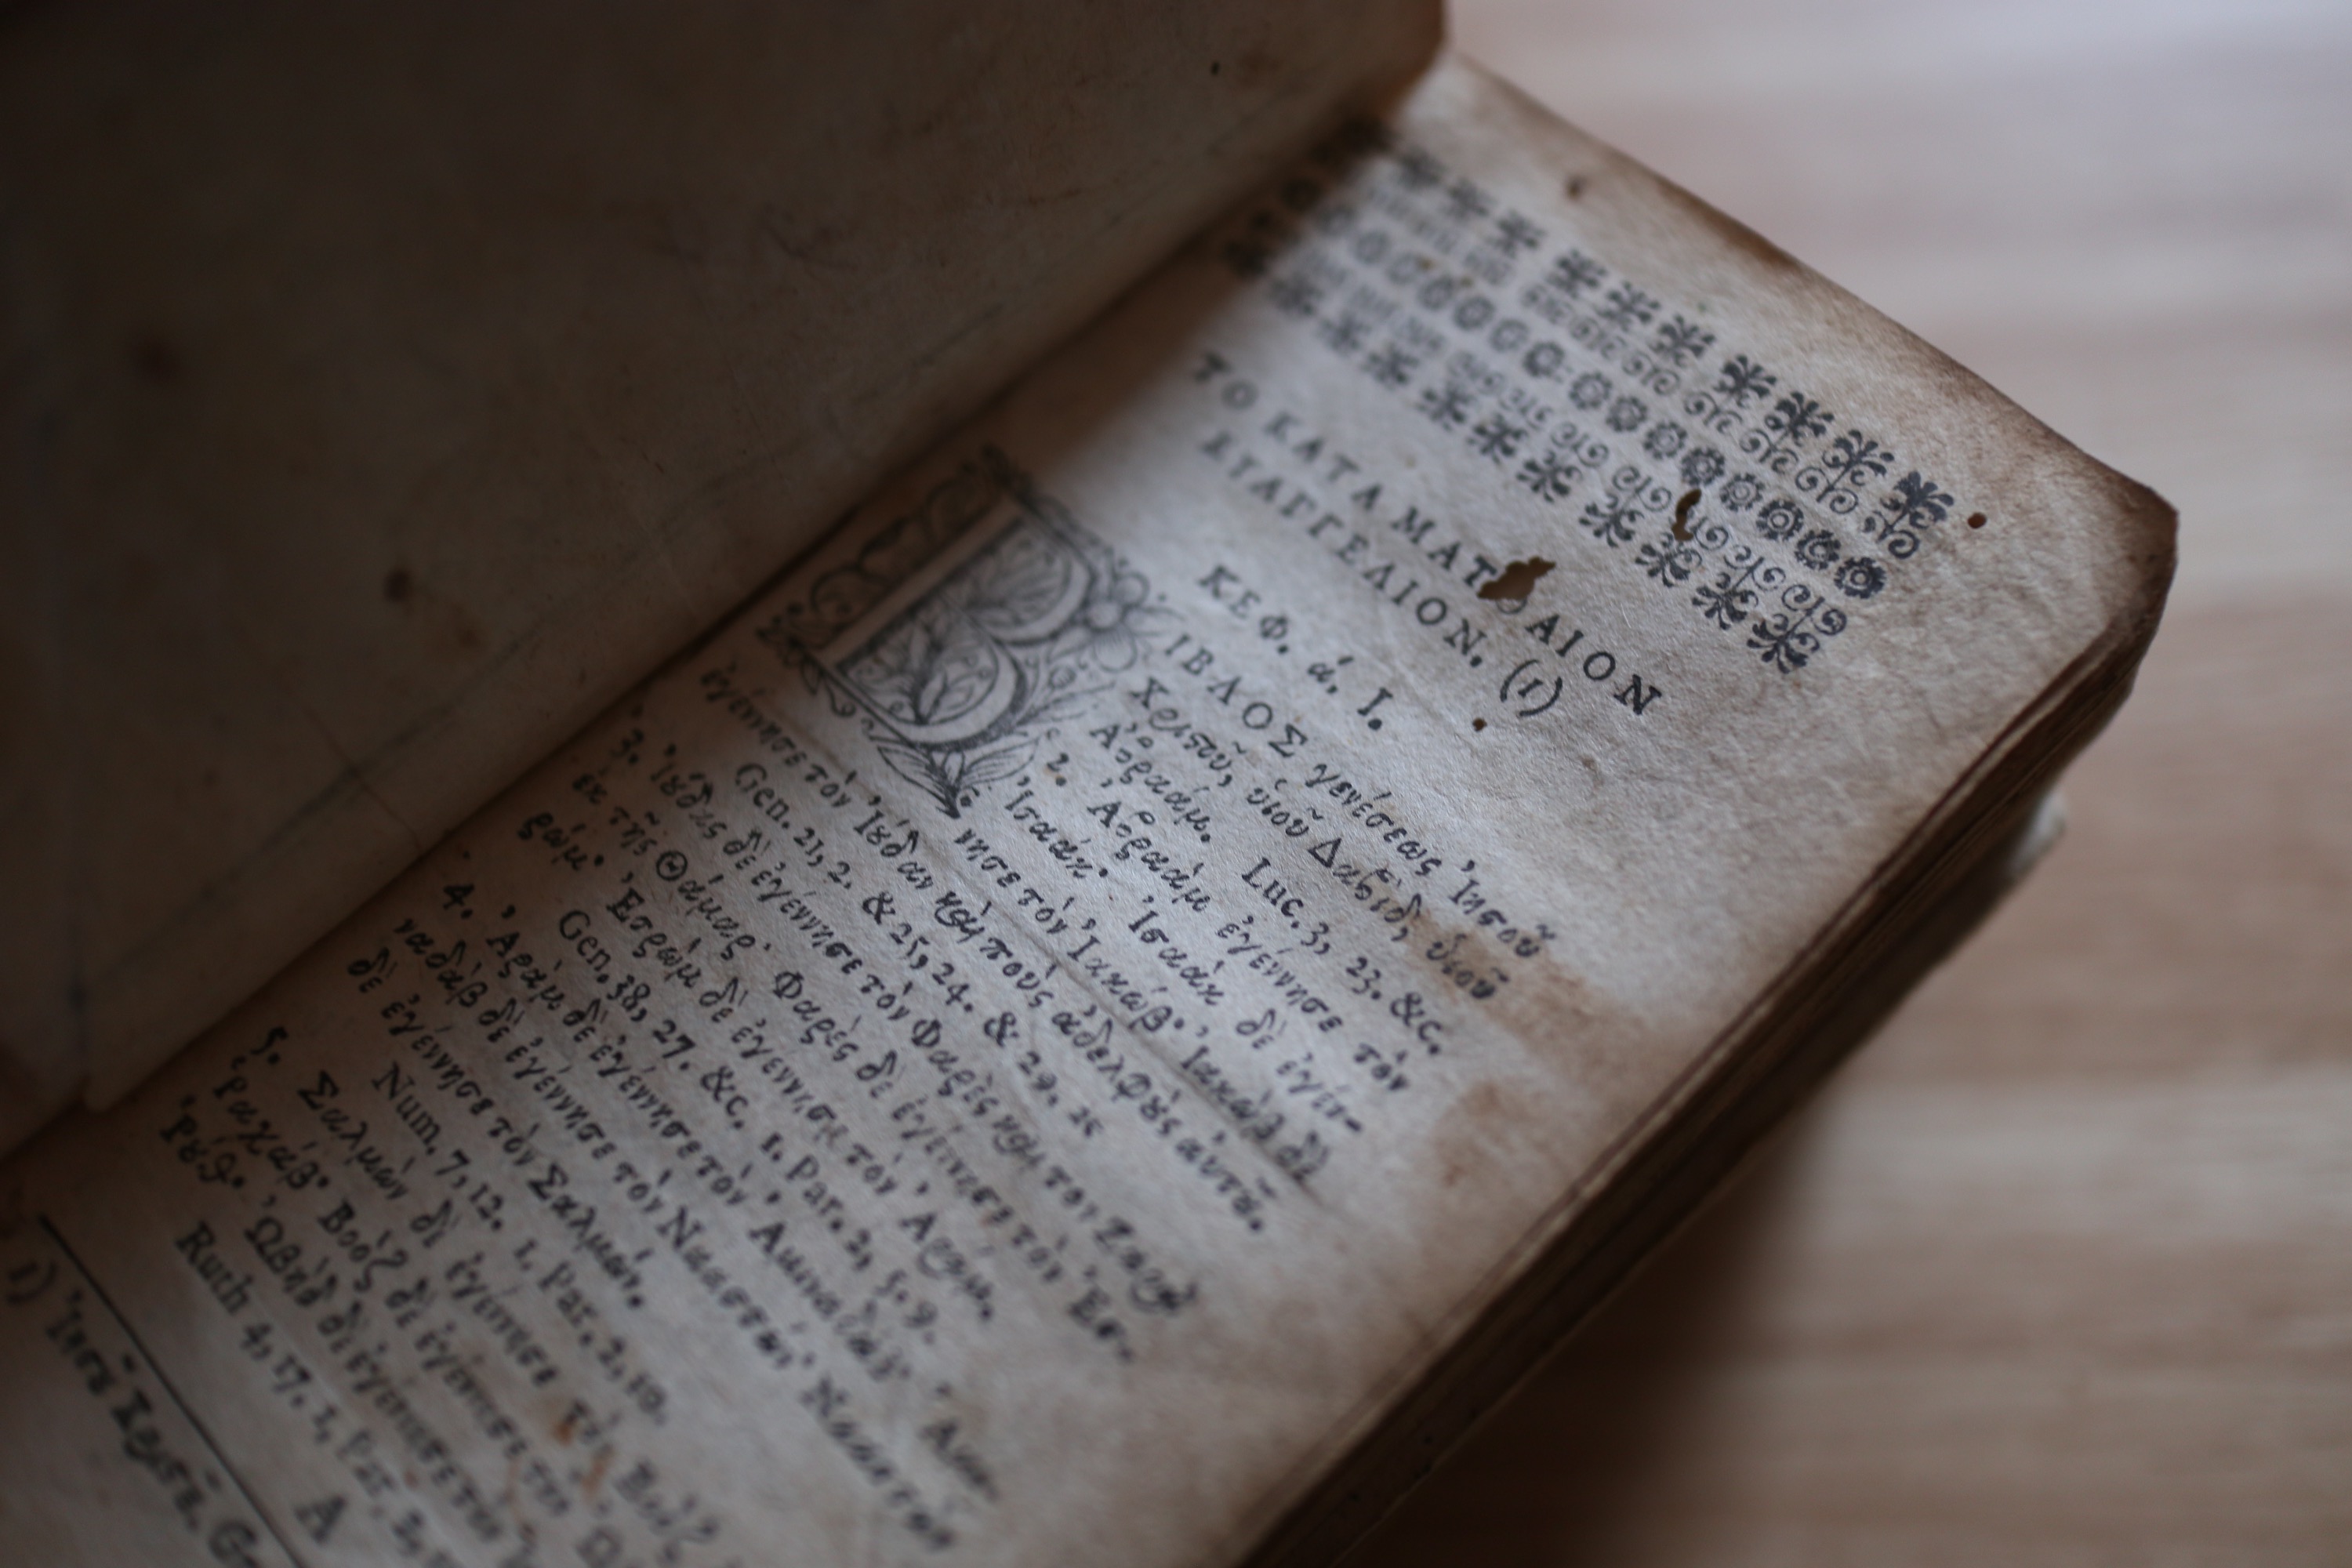 ΤΟ ΚΑΤΑ ΜΑΤΘΑΙΟΝ
ΕΥΑΓΓΕΛΙΟΝ. (1)
ΚΕΦ. ά. I.
ΒΙΒΛΟΣ γενέσεως Ἰησοῦ
Χριστοῦ, ὑιοῦ Δαβὶδ, ὑιοῦ
Ἀβραάμ. Luc. 3, 23. &c.
2. Ἀβραὰμ ἐγέννησε τὸν
Ἰσαάκ· Ἰσαὰκ δὲ ἐγέν-
νησε τὸν Ἰακώβ· Ἰακὼβ δὲ
ἐγέννησε τὸν Ἰούδαν καὶ τοὺς ἀδελφοὺς ἀυτοῦ.
Gen. 21, 2. & 25, 24. & 29.
3. Ἰούδας δὲ ἐγέννησε τὸν Φαρὲς καὶ τὸν Ζαρὰ
ἐκ τῆς Θάμαρ· Φαρὲς δὲ ἐγέννησε τὸν Ἐσ-
ρώμ· Ἐσρὼμ δὲ ἐγέννησε τὸν Ἀράμ.
Gen. 38, 27. &c. 1. Par. 2, 5. 9.
4. Ἀρὰμ δὲ ἐγέννησε τὸν Ἀμιναδάβ· Ἀμι-
ναδὰβ δὲ ἐγέννησε τὸν Ναασσών· Ναασσὼν
δὲ ἐγέννησε τὸν Σαλμών.
Num. 7, 12. 1. Par. 2, 10.
5. Σαλμὼν δὲ ἐγέννησε Βοὸζ
Ῥαχάβ· Βοὸζ δὲ ἐγέννησε τὸν
Ῥούθ· Ὠβὴδ δὲ ἐγέννησε τὸν
Ruth 4, 17. 1. Par. 2,
A
1) Ἰησοῦ Χριστοῦ,